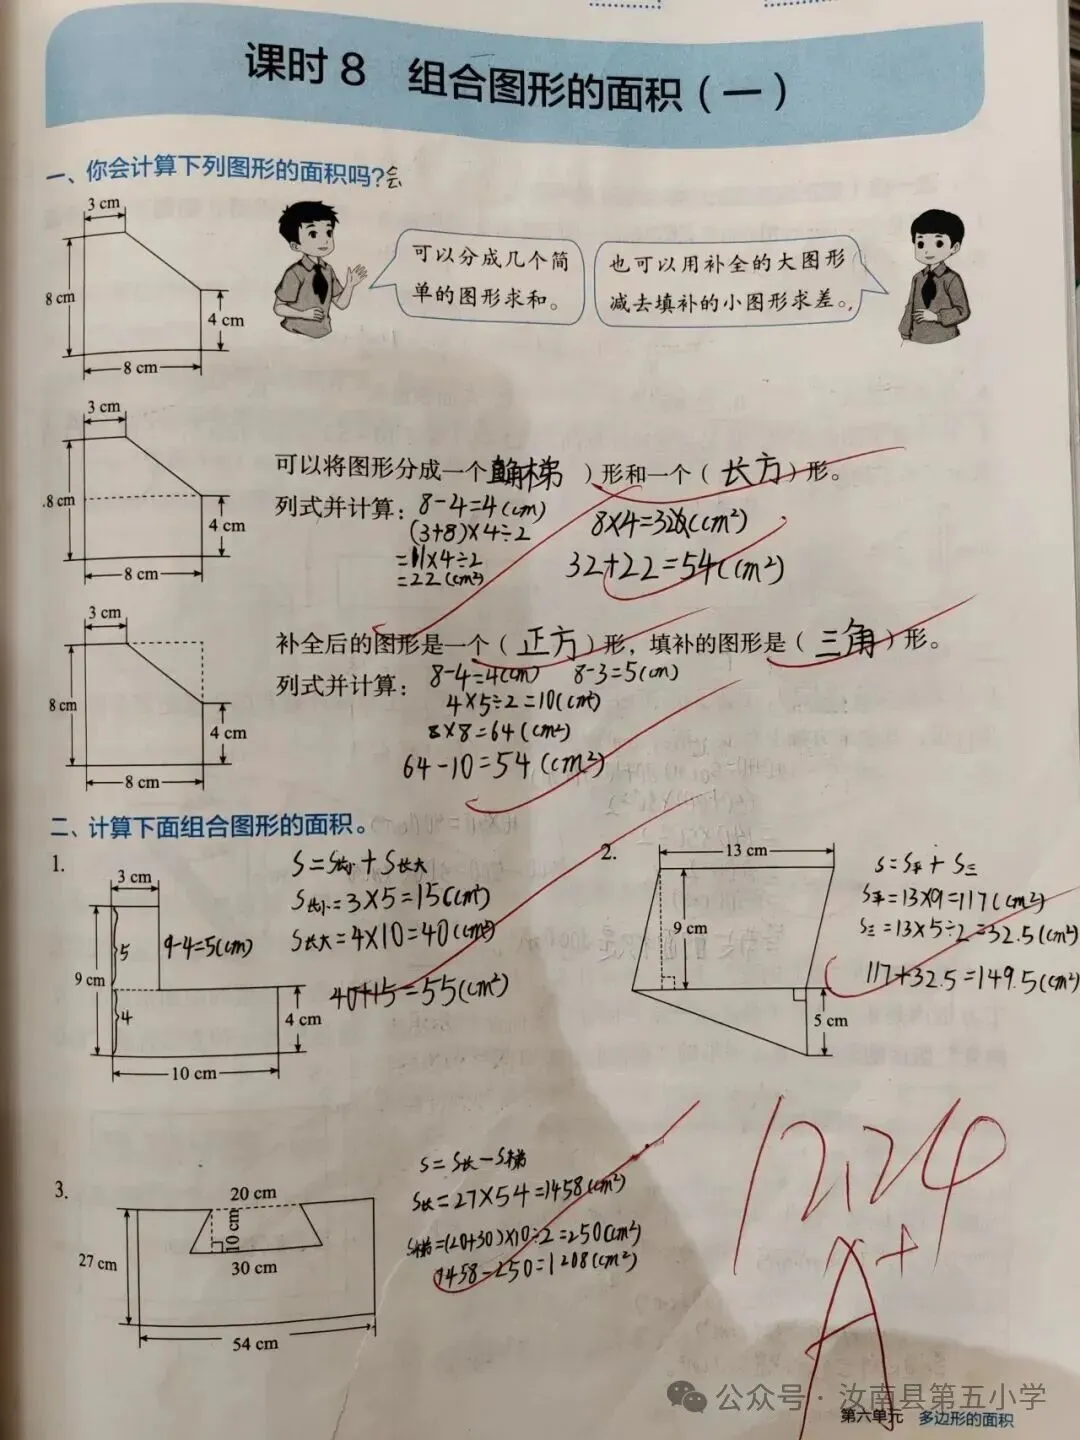 课时 8 组合图形的面积（一）
一、你会计算下列图形的面积吗？会
3 cm
8 cm
4 cm
8 cm
可以分成几个简
单的图形求和。
也可以用补全的大图形
减去填补的小图形求差。
3 cm
8 cm
4 cm
8 cm
可以将图形分成一个直角梯）形和一个（长方）形。
列式并计算：8-4=4(cm)
(3+8)×4÷2
=11×4÷2
=22(cm²)
8×4=32(cm²)
32+22=54(cm²)
3 cm
8 cm
4 cm
8 cm
补全后的图形是一个（正方）形，填补的图形是（三角）形。
列式并计算：8-4=4(cm) 8-3=5(cm)
4×5÷2=10(cm²)
8×8=64(cm²)
64-10=54(cm²)
二、计算下面组合图形的面积。
1.
3 cm
9 cm
5
4
9-4=5(cm)
4 cm
10 cm
S=S长小+S长大
S长小=3×5=15(cm²)
S长大=4×10=40(cm²)
40+15=55(cm²)
2.
13 cm
9 cm
5 cm
S=S平+S三
S平=13×9=117(cm²)
S三=13×5÷2=32.5(cm²)
117+32.5=149.5(cm²)
3.
20 cm
10 cm
30 cm
27 cm
54 cm
S=S长-S梯
S长=27×54=1458(cm²)
S梯=(20+30)×10÷2=250(cm²)
1458-250=1208(cm²)
12.24
A+
公众号·汝南县第五小学
第六单元 多边形的面积